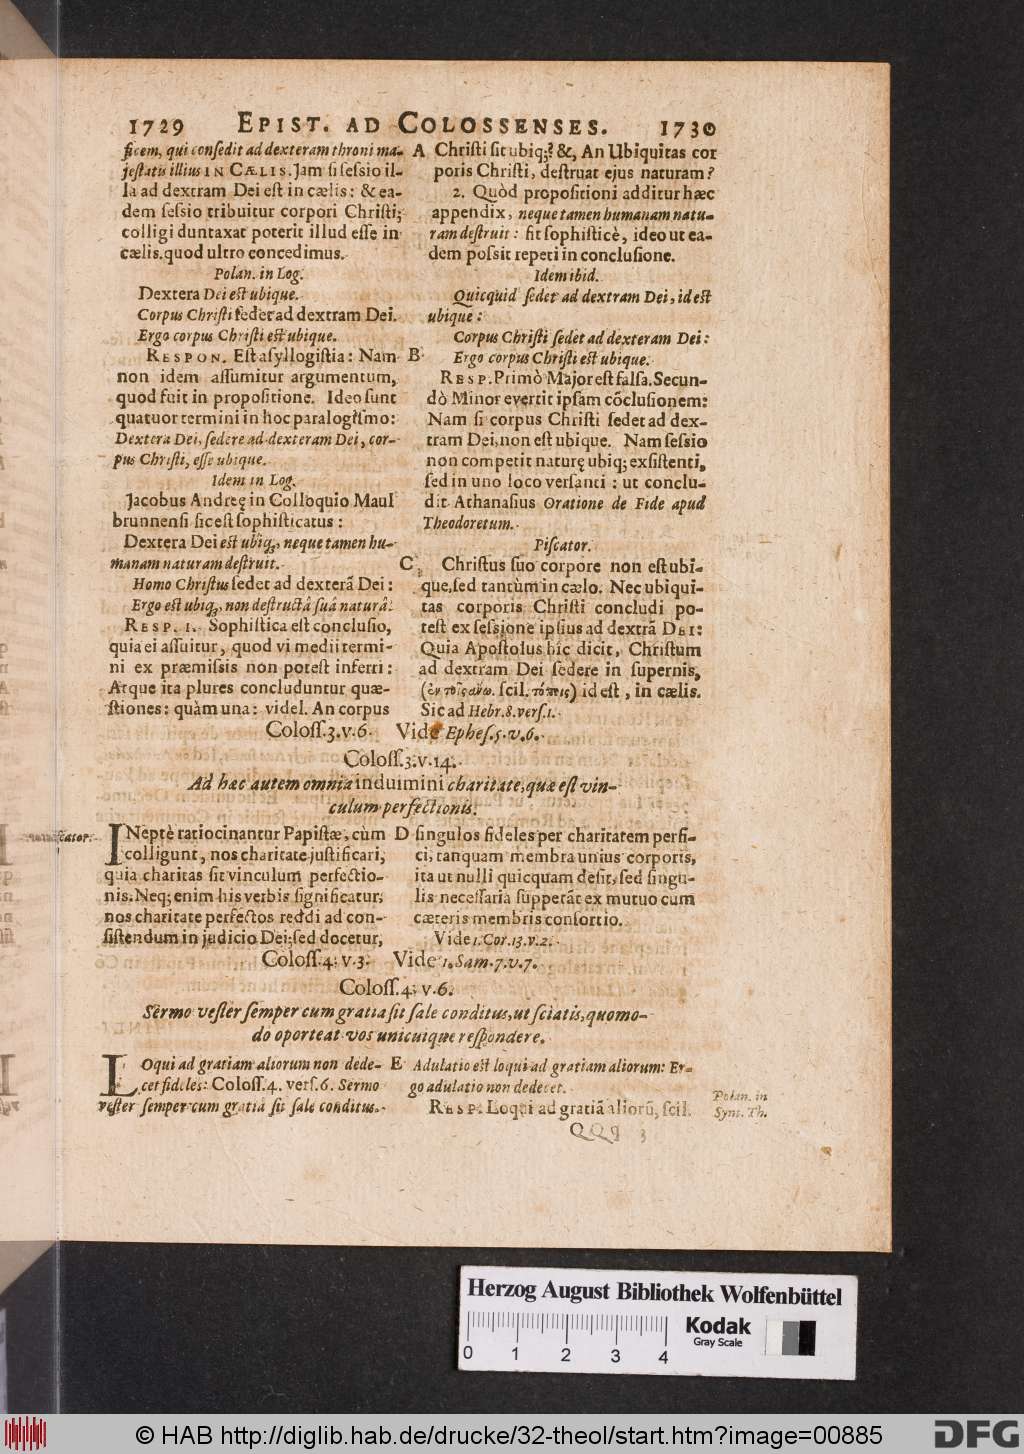 1729 EPIST. AD COLOSSENSES. 1730
ficem, qui consedit ad dexteram throni ma-
jestatis illius IN CÆLIS. Jam si sessio il-
la ad dextram Dei est in cælis: & ea-
dem sessio tribuitur corpori Christi;
colligi duntaxat poterit illud esse in
cælis. quod ultro concedimus.
Polan. in Log.
Dextera Dei est ubique.
Corpus Christi sedet ad dextram Dei.
Ergo corpus Christi est ubique.
RESPON. Est asyllogistia: Nam
non idem assumitur argumentum,
quod fuit in propositione. Ideo sunt
quatuor termini in hoc paralogismo:
Dextera Dei, sedere ad dexteram Dei, cor-
pus Christi, esse ubique.
Idem in Log.
Jacobus Andreę in Colloquio Maul
brunnensi sic est sophisticatus:
Dextera Dei est ubiq;, neque tamen hu-
manam naturam destruit.
Homo Christus sedet ad dexterã Dei:
Ergo est ubiq;, non destructâ suâ naturâ.
RESP. 1. Sophistica est conclusio,
quia ei assuitur, quod vi medii termi-
ni ex præmissis non potest inferri:
Atque ita plures concluduntur quæ-
stiones: quàm una: videl. An corpus
A Christi sit ubiq;? &, An Ubiquitas cor
poris Christi, destruat ejus naturam?
2. Quòd propositioni additur hæc
appendix, neque tamen humanam natu-
ram destruit: fit sophisticè, ideo ut ea-
dem possit repeti in conclusione.
Idem ibid.
Quicquid sedet ad dextram Dei, id est
ubique:
Corpus Christi sedet ad dexteram Dei:
B Ergo corpus Christi est ubique.
RESP. Primò Major est falsa. Secun-
dò Minor evertit ipsam cõclusionem:
Nam si corpus Christi sedet ad dex-
tram Dei, non est ubique. Nam sessio
non competit naturę ubiq; exsistenti,
sed in uno loco versanti: ut conclu-
dit Athanasius Oratione de Fide apud
Theodoretum.
Piscator.
C Christus suo corpore non est ubi-
que, sed tantùm in cælo. Nec ubiqui-
tas corporis Christi concludi po-
test ex sessione ipsius ad dextrã DEI:
Quia Apostolus hîc dicit, Christum
ad dextram Dei sedere in supernis,
(ἐν τοῖς ἄνω. scil. τόποις) id est, in cælis.
Sic ad Hebr. 8. vers. 1.
Coloss. 3. v. 6. Vide Ephes. 5. v. 6.
Coloss. 3. v. 14.
Ad hæc autem omnia induimini charitate, quæ est vin-
culum perfectionis.
INeptè ratiocinantur Papistæ, cùm
colligunt, nos charitate justificari,
quia charitas sit vinculum perfectio-
nis. Neq; enim his verbis significatur,
nos charitate perfectos reddi ad con-
sistendum in judicio Dei; sed docetur,
D singulos fideles per charitatem perfi-
ci, tanquam membra unius corporis,
ita ut nulli quicquam desit, sed singu-
lis necessaria suppetãt ex mutuo cum
cæteris membris consortio.
Vide 1. Cor. 13. v. 2.
Coloss. 4. v. 3. Vide 1. Sam. 7. v. 7.
Coloss. 4. v. 6.
Sermo vester semper cum gratia sit sale conditus, ut sciatis, quomo-
do oporteat vos unicuique respondere.
LOqui ad gratiam aliorum non dede-
cet fideles: Coloss. 4. vers. 6. Sermo
vester semper cum gratiâ sit sale conditus.
E Adulatio est loqui ad gratiam aliorum: Er-
go adulatio non dedecet.
RESP. Loqui ad gratiã aliorũ, scil.
Polan. in
Synt. Th.
QQq 3
Herzog August Bibliothek Wolfenbüttel
Kodak
Gray Scale
0 1 2 3 4
© HAB http://diglib.hab.de/drucke/32-theol/start.htm?image=00885
DFG